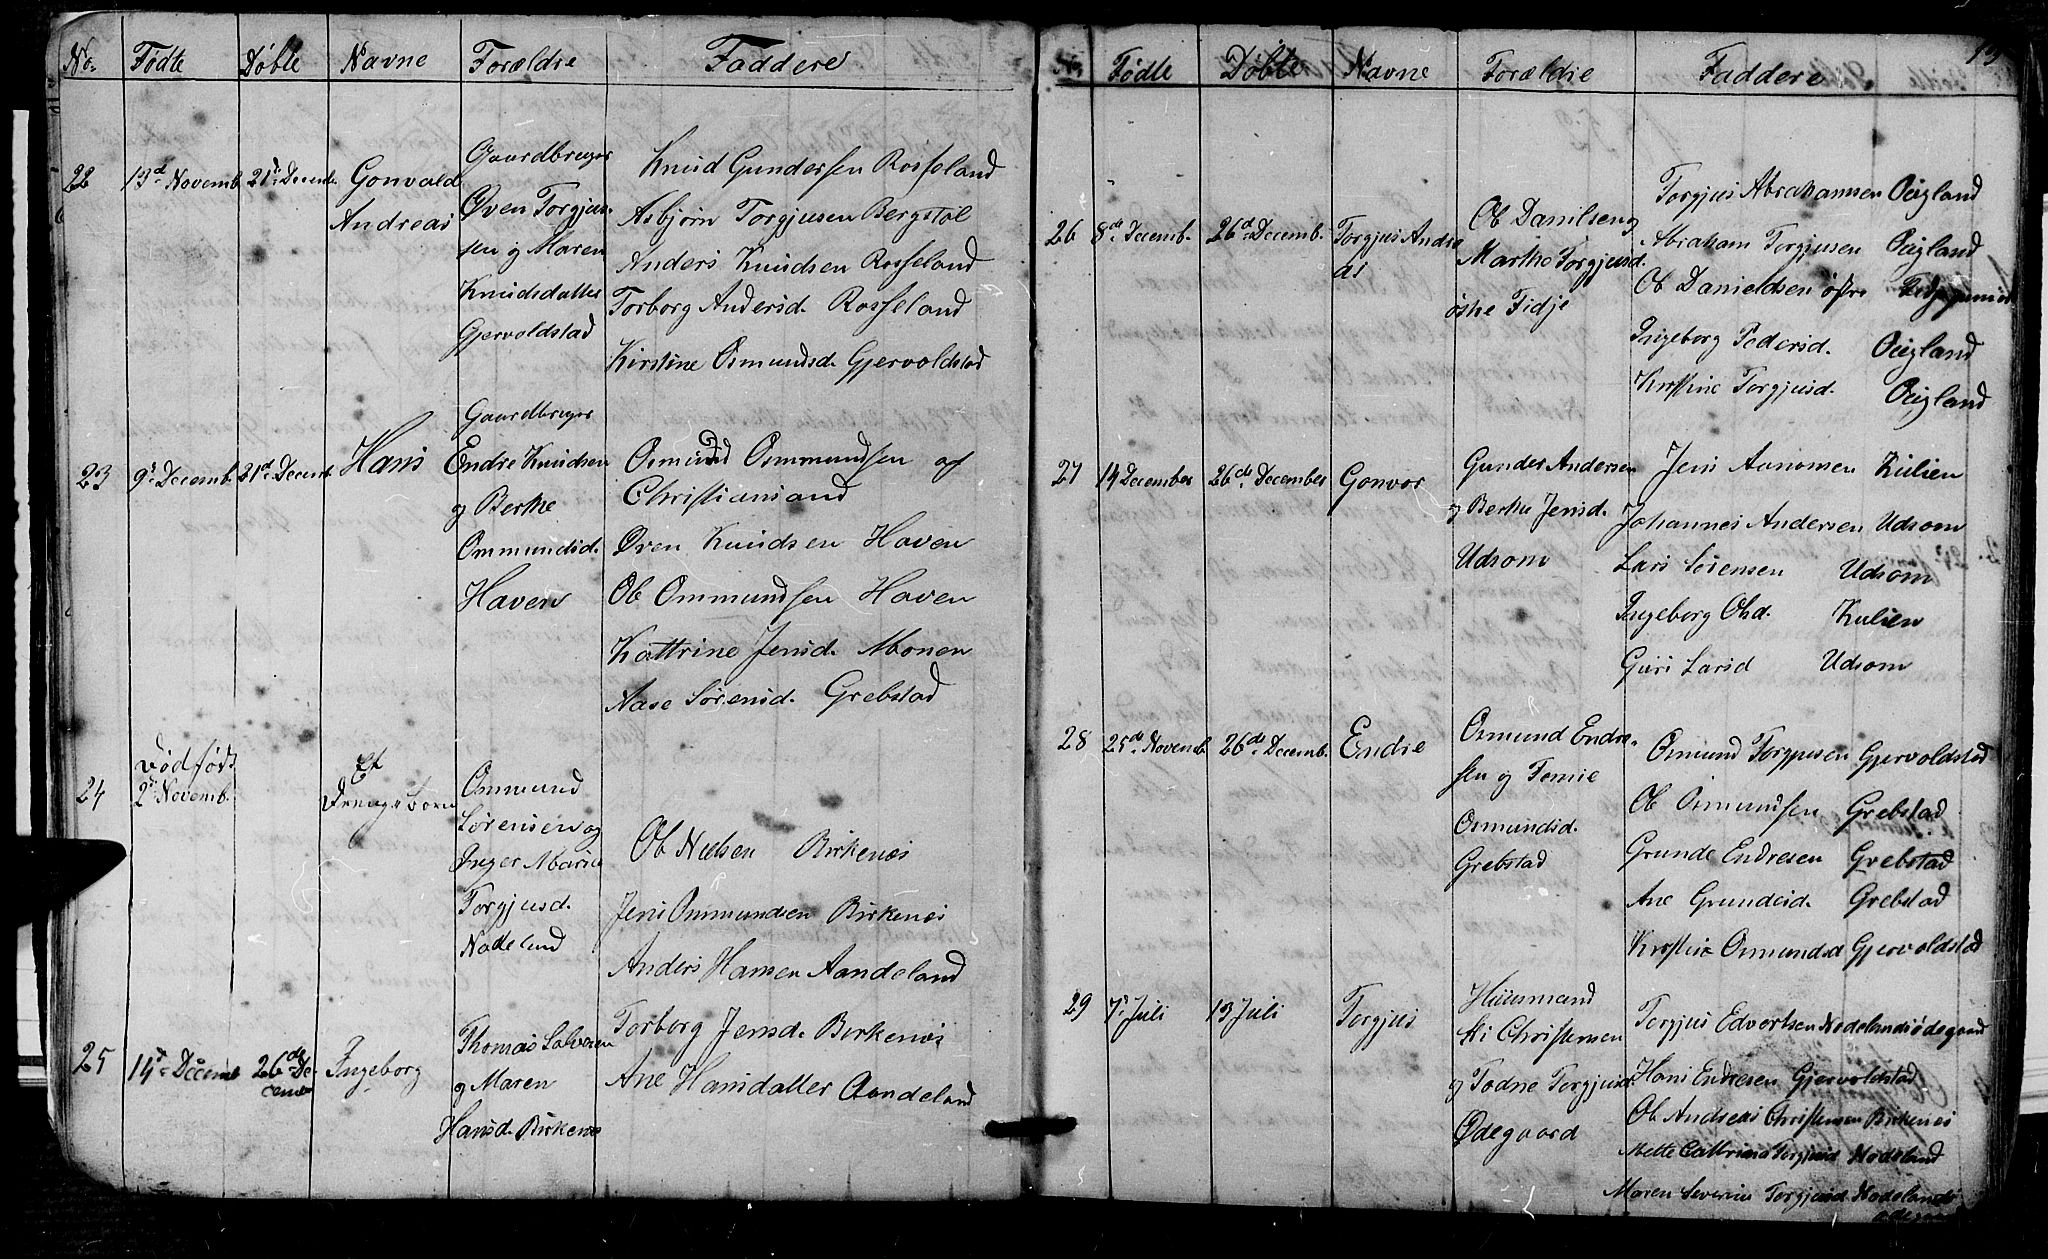 No. Fødte Døbte Navne Forældre Faddere
22 13d. Novemb. 21d. Decemb. Gonvald Andreas
Gaardbruger
Øven Torgjus-
sen og Maren
Knudsdatter
Gjervoldstad
Knud Gundersen Rosseland
Asbjørn Torgjusen Bergstøl
Anders Knudsen Rosseland
Torborg Andersd. Rosseland
Kirstine Osmundsd. Gjervoldstad
23 9d. Decemb. 21d. Decemb. Hans
Gaardbruger
Endre Knudsen
og Berthe
Ommundsd.
Haven
Osmund Ommundsen af
Christiansand
Øven Knudsen Haven
Ole Ommundsen Haven
Kattrine Jensd. Monen
Aase Sørensd. Grebstad
24 Dødfødt
2d. Novemb. Et
Drengebarn
Ommund
Sørensen og
Inger Marie
Torgjusd.
Nodeland
25 14d. Decemb 26de De-
cember Ingeborg
Thomas Salvesen
og Maren
Hansd. Birkenes
Ole Nielsen Birkenes
Jens Ommundsen Birkenes
Anders Hansen Aandeland
Torborg Jensd. Birkenes
Ane Hansdatter Aandeland
No. Fødte Døbte Navne Forældre Faddere
26 8de Decemb. 26de Decemb. Torgjus Andre
as
Ole Danilsen og
Marthe Torgjusd.
østre Fidje
Torgjus Abrahamsen Øigland
Abraham Torgjusen Øigland
Ole Danieldsen øfre
Ingeborg Pedersd. Øigland
Kirstine Torgjusd. Øigland
27 14 December 26de December Gonvor
Gunder Andersen
og Berthe Jensd.
Udsom
Jens Aanonsen Kulien
Johannes Andersen Udsom
Lars Sørensen Udsom
Ingeborg Olsd. Kulien
Guri Larsd Udsom
28 25de Novemb. 26de Decemb. Endre
Osmund Endre-
sen og Tomie
Osmundsd.
Grebstad
Osmund Torgjusen Gjervoldstad
Ole Osmundsen Grebstad
Grunde Endresen Grebstad
Ane Grundesd. Grebstad
Kirstine Osmundsd Gjervoldstad
29 7d. Juli 13 Juli Torgjus
Huusmand
Christensen
og Todne Torgjusd.
Ødegaard
Torgjus Edvortsen Nodelandsødegaard
Hans Endresen Gjervoldstad
Ole Andreas Christensen Birkenes
Mette Cathrine Torgjusd Nodeland
Maren Severine Torgjusd. Nodelands